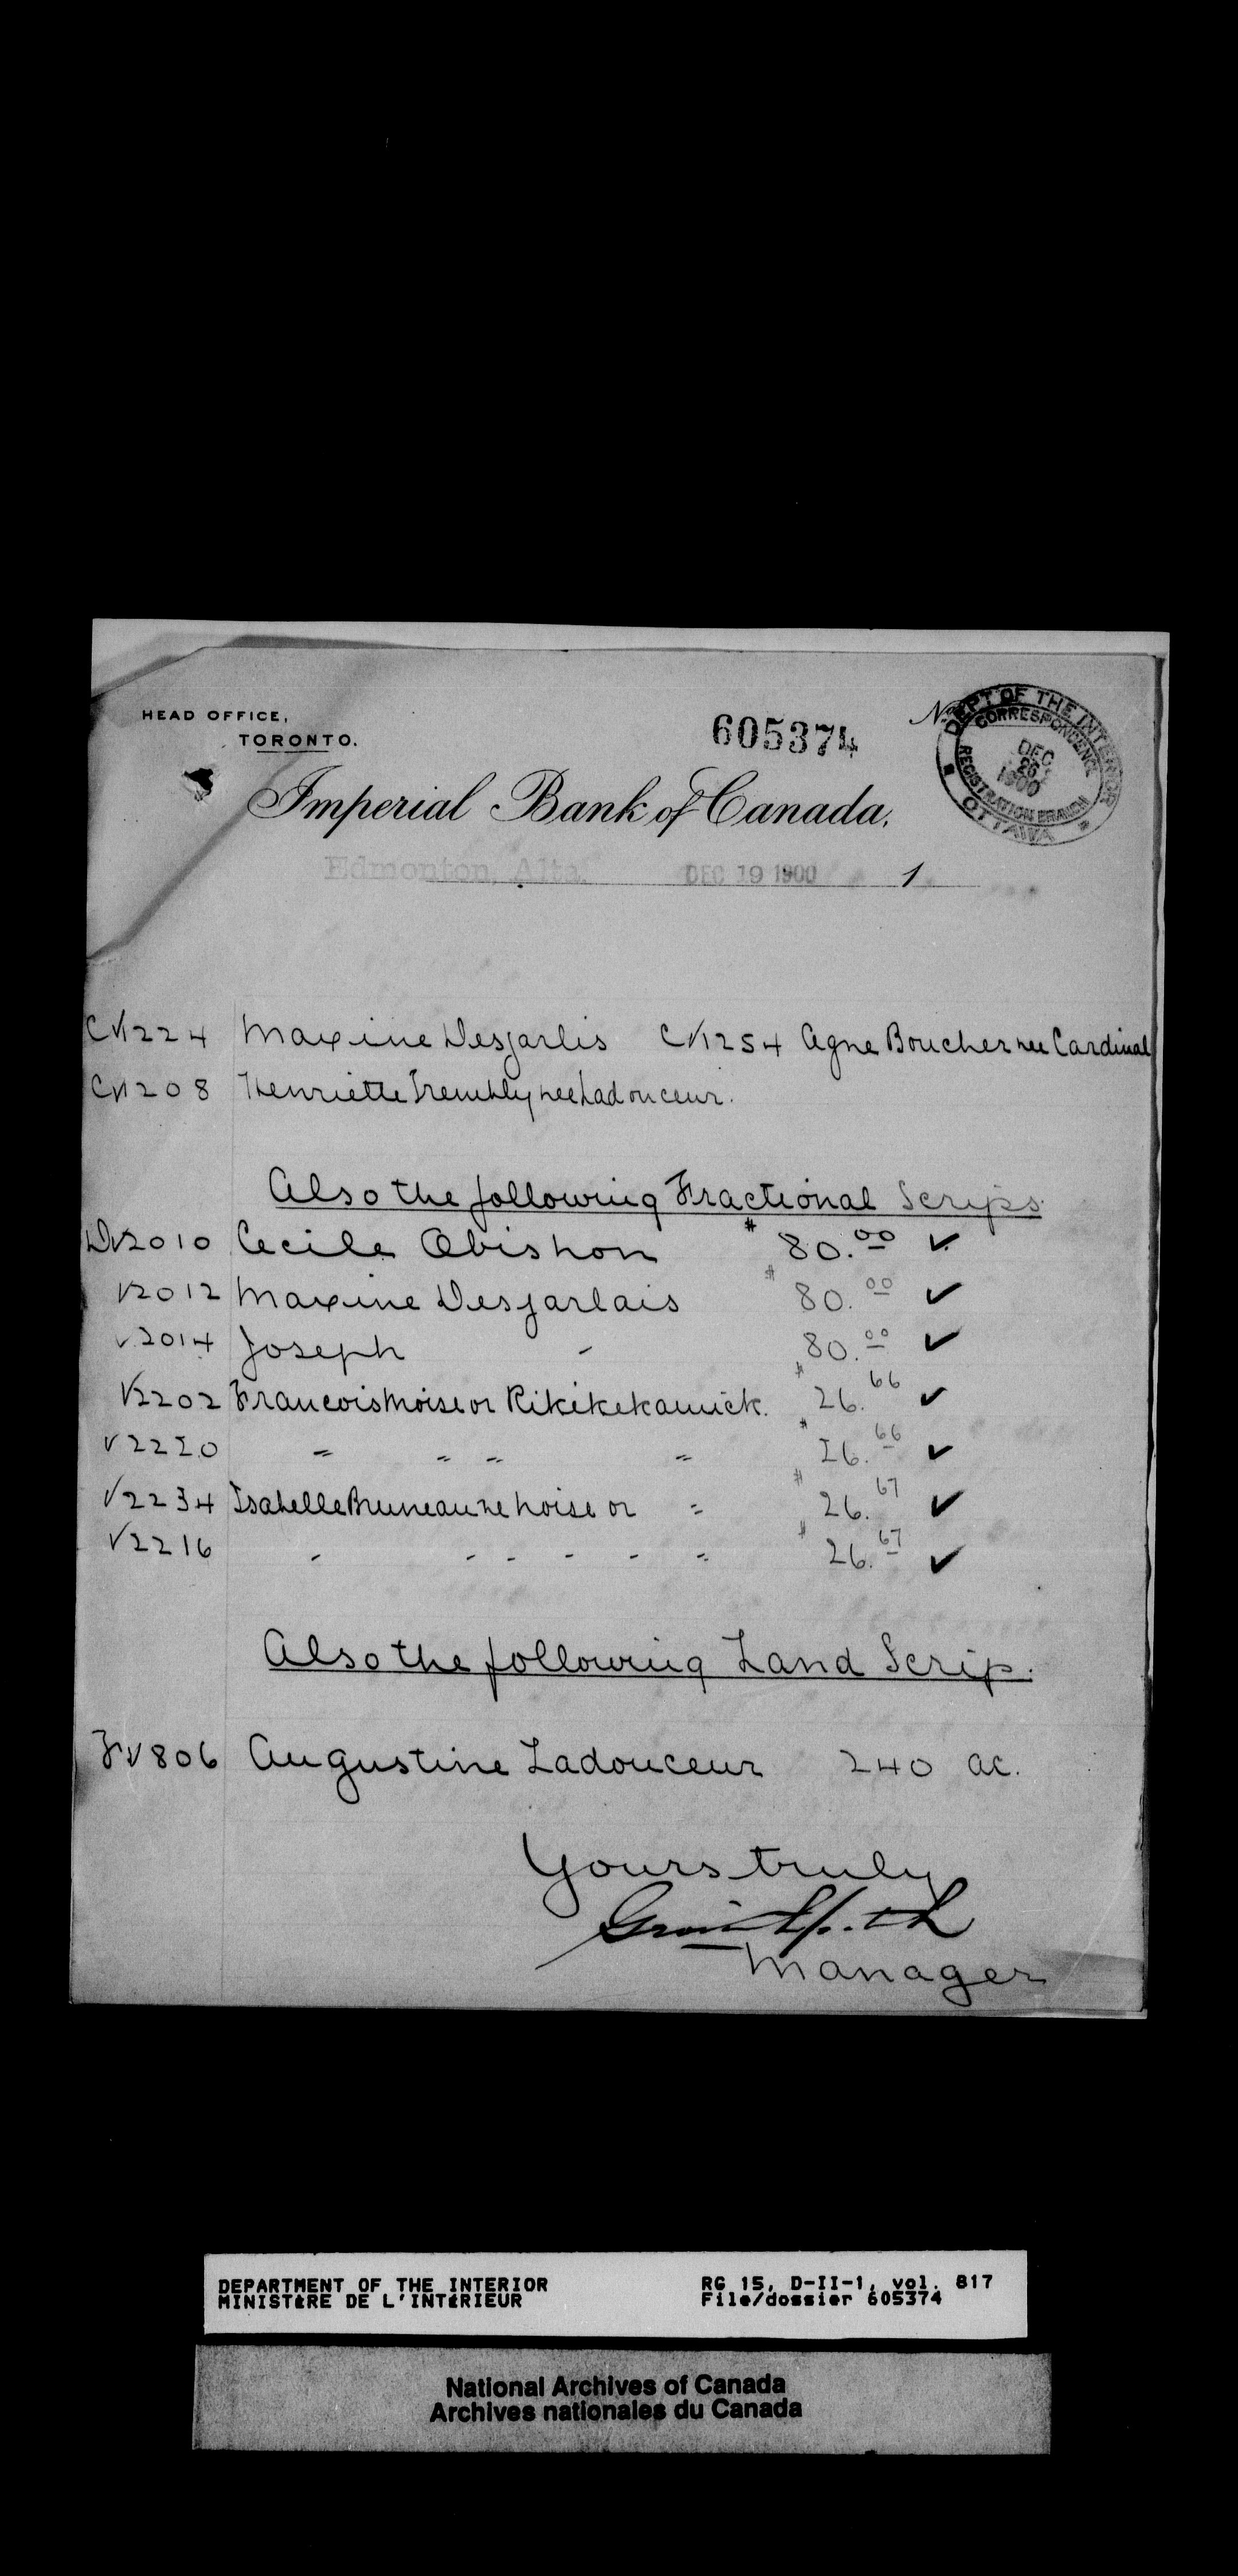 HEAD OFFICE,
TORONTO.
605374
No.
DEPT OF THE INTERIOR
CORRESPONDENCE
DEC
26
1900
REGISTRATION BRANCH
OTTAWA
Imperial Bank of Canada.
Edmonton, Alta. DEC 19 1900 1
C✓1224 Maxine Desjarlis C✓1254 Agne Boucher nee Cardinal
C✓1208 Henriette Trembly nee Ladouceur.
Also the following Fractional Scrips
D✓2010 Cecile Abishon $80.00 ✓
✓2012 Maxine Desjarlais $80.00 ✓
✓2014 Joseph " 80.00 ✓
✓2202 Francois Moise or Kikikekamick. $26.66 ✓
✓2220 " " " " $26.66 ✓
✓2234 Isabelle Bruneau ne Moise or " $26.67 ✓
✓2216 " " " " " " $26.67 ✓
Also the following Land Scrip.
F✓806 Augustine Ladouceur 240 ac.
Yours truly
Manager
DEPARTMENT OF THE INTERIOR RG 15, D-II-1, vol. 817
MINISTÈRE DE L'INTÉRIEUR File/dossier 605374
National Archives of Canada
Archives nationales du Canada